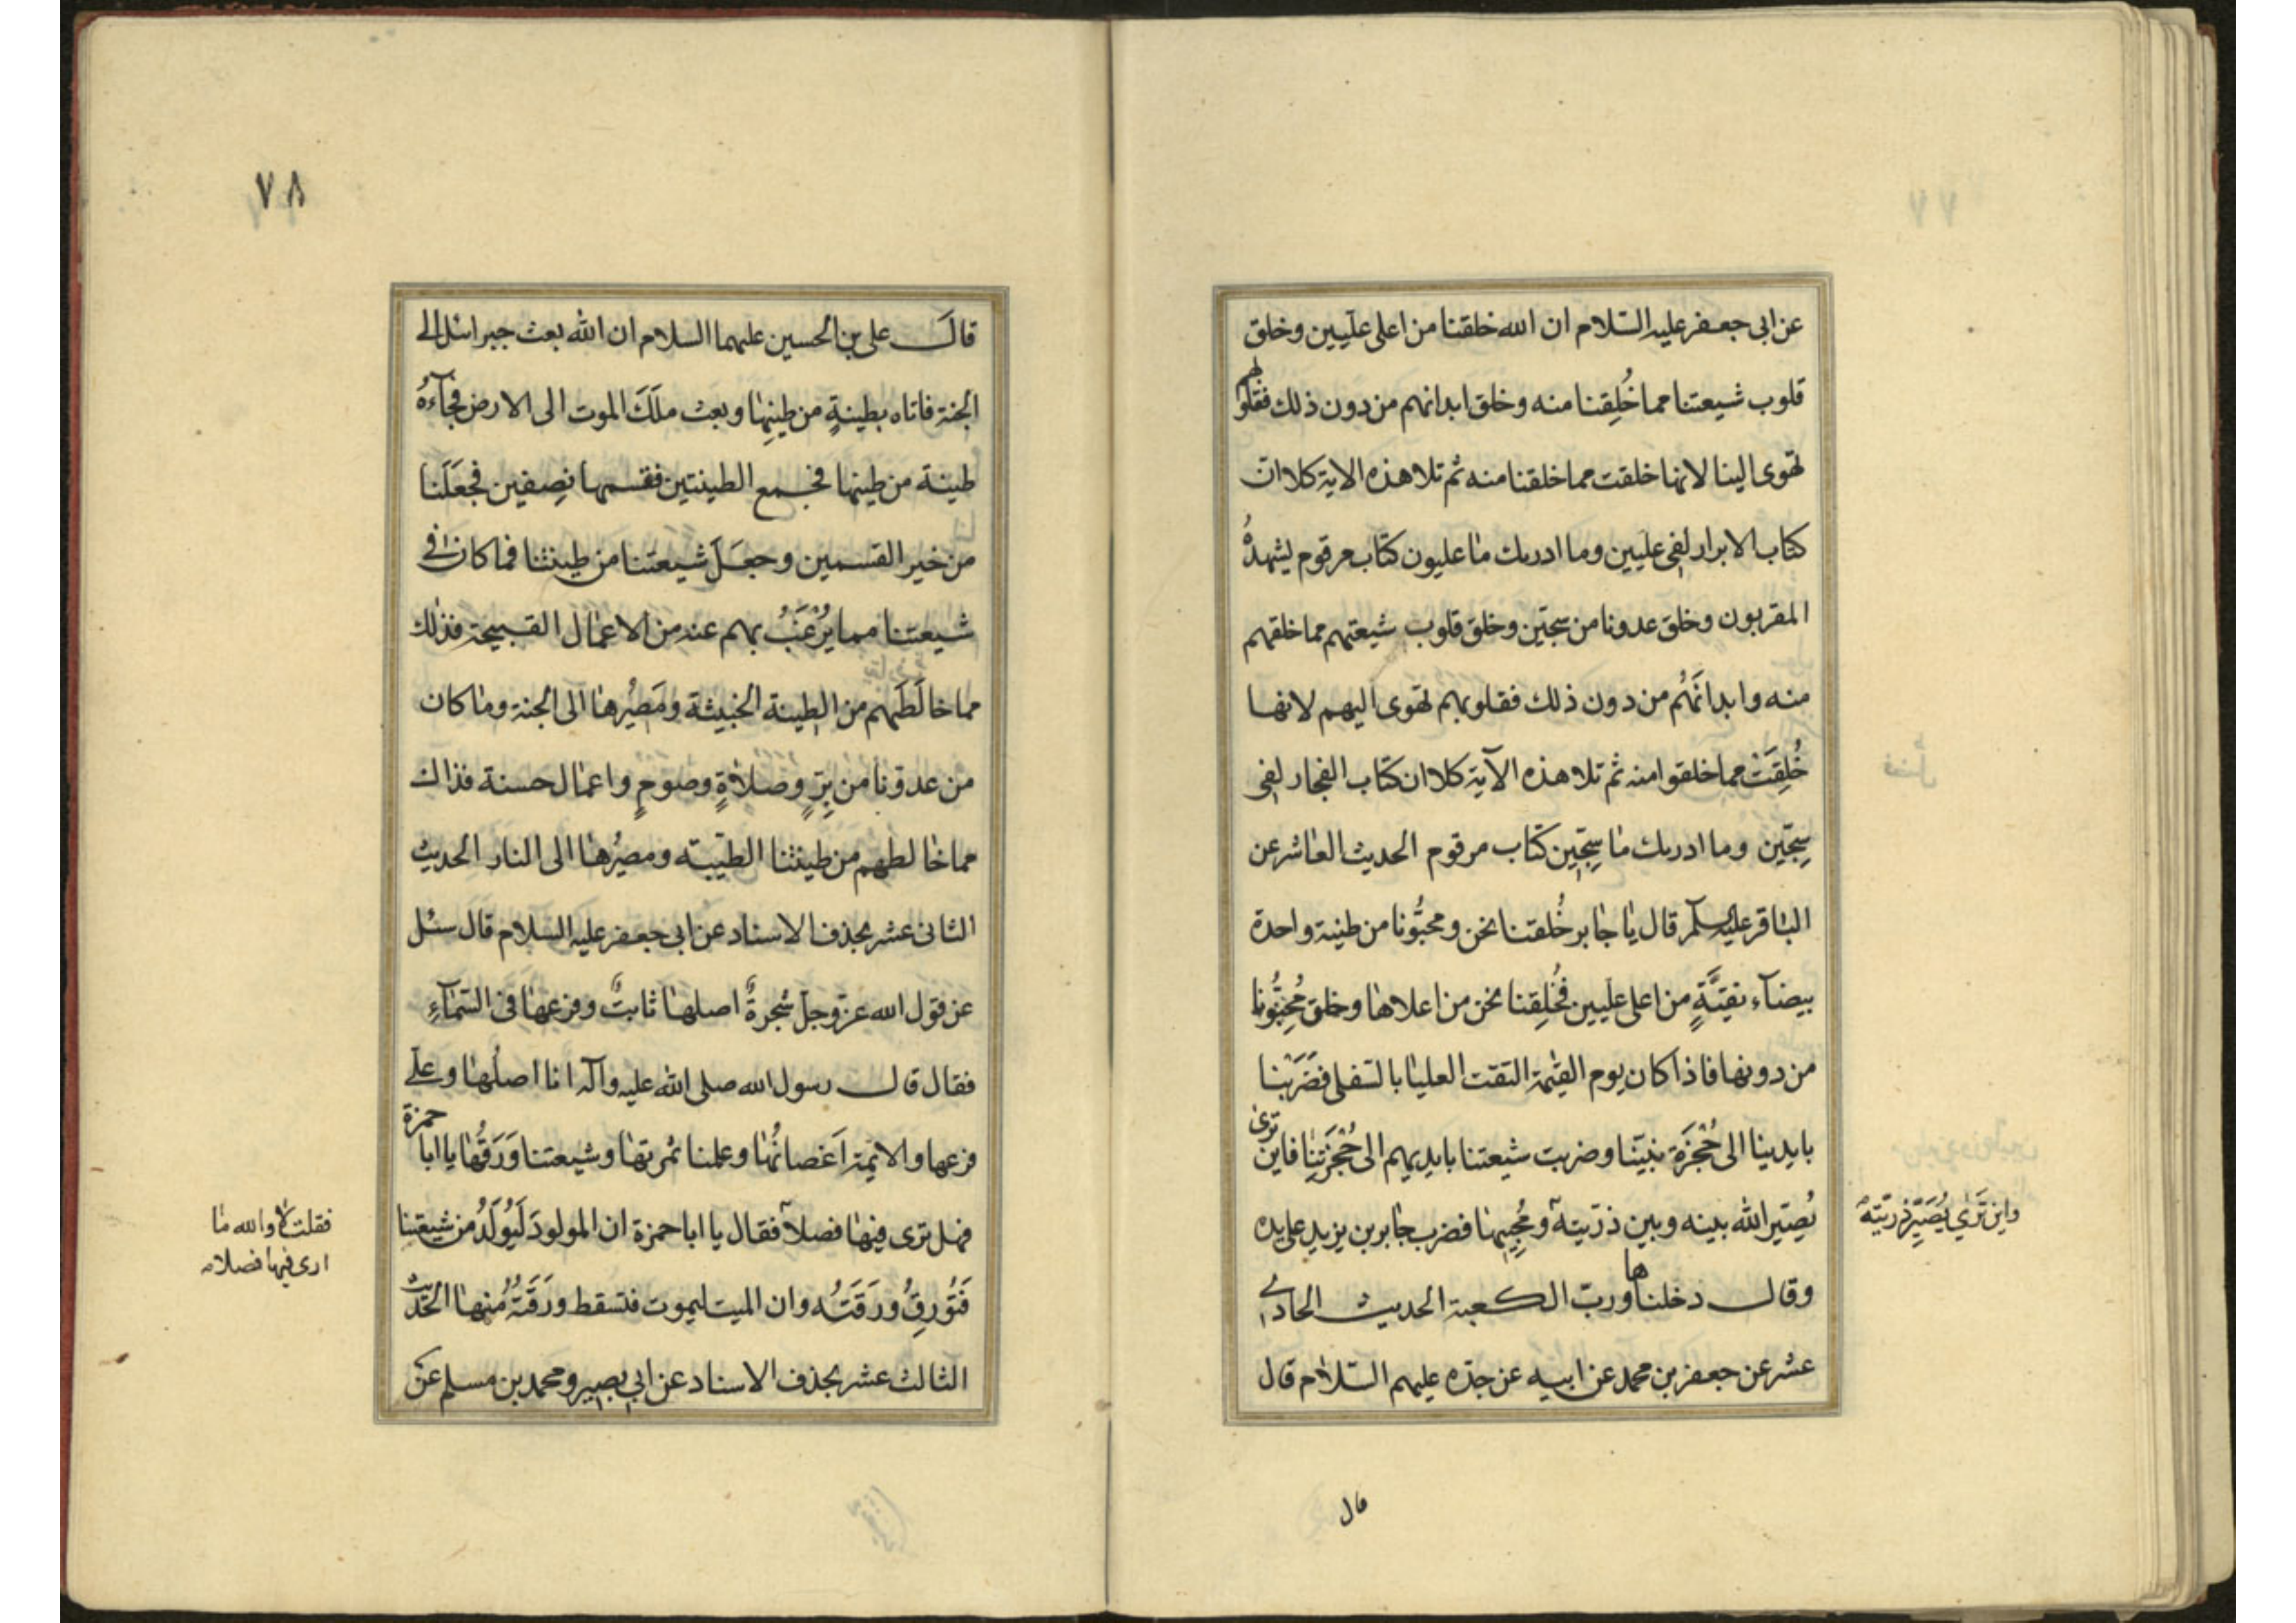 عن ابى جعفر عليه السّلام ان الله خلقنا من اعلى علّيين وخلق
قلوب شيعتنا مما خُلِقنا منه وخلق ابدانهم من دون ذلك فقلوبهم
تهوى الينا لانها خلقت مما خلقنا منه ثم تلا هذه الاية كلا انّ
كتاب الابرار لفى علّيين وما ادريك ما عليون كتاب مرقوم يشهدهُ
المقربون وخلق عدونا من سجّين وخلق قلوب شيعتهم مما خلقهم
منه وابدانَهُم من دون ذلك فقلوبهم تهوى اليهم لانها
خُلِقَتْ مما خلقوا منه ثم تلا هذه الآية كلا ان كتاب الفجار لفى
سِجّين وما ادريك ما سِجّين كتاب مرقوم الحديث العاشر عن
الباقر عليه السلم قال يا جابر خُلقتنا نحن ومحبُّونا من طينة واحدة
بيضآء نقيَّةٍ من اعلى علّيين فخُلِقنا نحن من اعلاها وخلق مُحِبُّونا
من دونها فاذا كان يوم القيٰمة التقت العليا بالسّفلى فضَرَبْنا
بايدينا الى حُجْزَة نبيّنا وضربت شيعتنا بايديهم الى حُجْزَتِنا فاين ترى
يُصيّر الله بينه وبين ذرّيته وَمُحِبيها فضرب جابر بن يزيد على يده
واين تَرى يُصَيِّر ذرّيته
وقال دخلناها وربّ الكعبة الحديث الحادى
عشر عن جعفر بن محمد عن ابيه عن جدّه عليهم السّلام قال
قال
٧٨
قالَ على بن الحسين عليهما السلام ان الله بعث جبرائل الى
الجنة فاتاه بطينةٍ من طينِها وبعث ملَكَ الموت الى الارض فجآءهُ
طينة من طينها فجمع الطينتين فقسمها نِصفين فجَعَلَنا
من خير القسمين وجعَلَ شيعتنا من طينتنا فما كان فى
شيعتنا مما يُرْغَبُ بهم عنه من الاعمال القبيحة فذلك
مما خالَطَهم من الطِينة الخبيثة ومَصيُرها الى الجنة وما كان
من عدوّنا من بِرٍّ وصلاةٍ وصومٍ واعمال حسنة فذاك
مما خالطهم من طينتنا الطيّبه ومصيُرها الى النار الحديث
الثانى عشر بحذف الاسناد عن ابى جعفر عليه السلام قال سئل
عن قول الله عزّ وجلّ شجرةٌ اصلها ثابتٌ وفرعها فى السّمآءِ
فقال قال رسول الله صلى الله عليه وآله انا اصلُها وعلى
فرعها والايمة اَغصانُها وعلمنا ثمرتها وشيعتنا وَرَقُها يا ابا حمزة
فهل ترى فيها فصلاً فقال يا ابا حمزة ان المولودَ لَيُولَدُ من شيعتنا
فقلت لا والله ما
ارى فيها فصلا
فَتُورِقُ ورَقَتُه وان الميت ليموت فتسقط ورَقَتُهُ منها الحديث
الثالث عشر بحذف الاسناد عن ابى بصير ومحمد بن مسلم عن